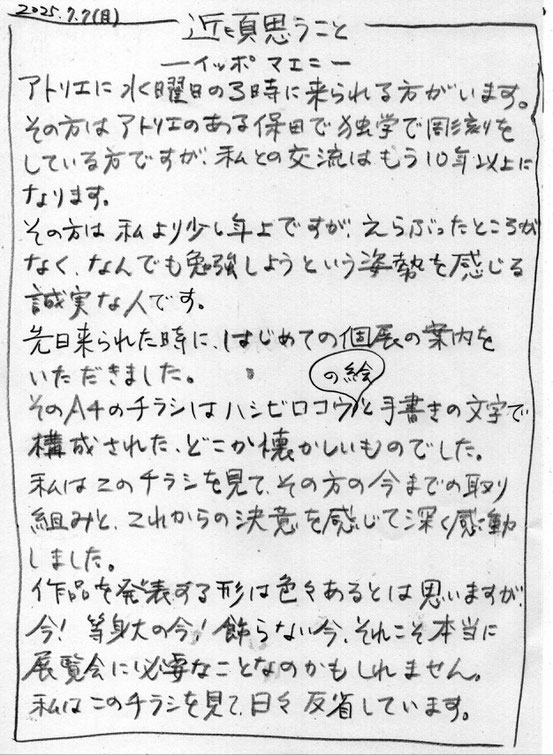 2025.7.7(月)
近頃思うこと
ーイッポ マエニー
アトリエに水曜日の3時に来られる方がいます。
その方はアトリエのある保田で独学で彫刻を
している方ですが、私との交流はもう10年以上に
なります。
その方は私より少し年上ですが、えらぶったところが
なく、なんでも勉強しようという姿勢を感じる
誠実な人です。
先日来られた時に、はじめての個展の案内を
いただきました。
そのA4のチラシはハシビロコウの絵と手書きの文字で
構成された、どこか懐かしいものでした。
私はこのチラシを見て、その方の今までの取り
組みと、これからの決意を感じて深く感動
しました。
作品を発表する形は色々あるとは思いますが、
今!等身大の今!飾らない今、それこそ本当に
展覧会に必要なことなのかもしれません。
私はこのチラシを見て、日々反省しています。